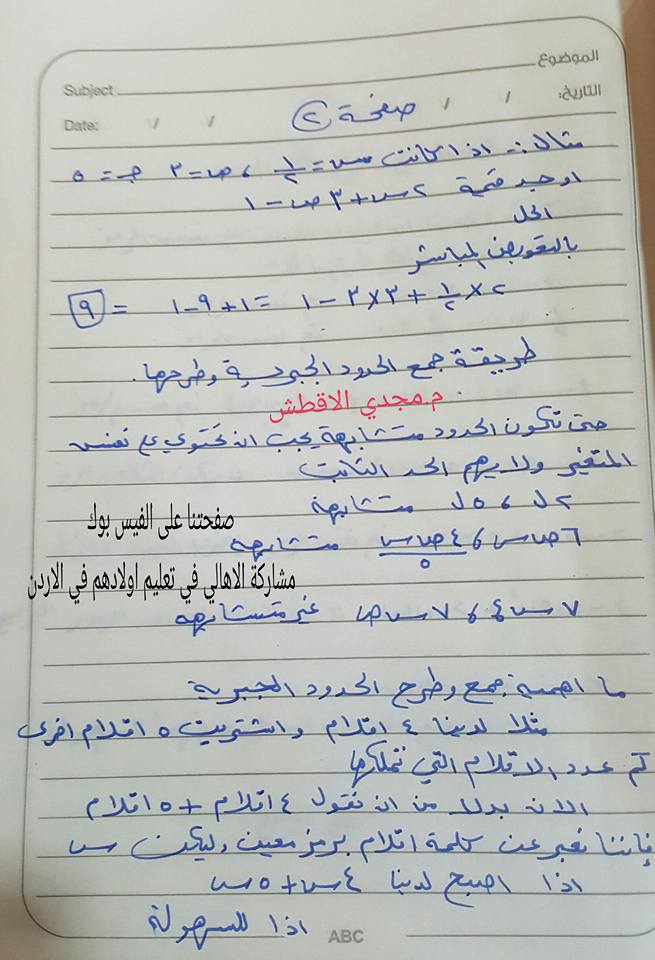 الموضوع
Subject
التاريخ: / /
Date: / /
صفحة ٢
مثال :- اذا كانت س = ١/٢ ، ص = ٣ جـ = ٥
اوجد قيمة ٢س + ٣ص - ١
الحل
بالتعويض المباشر
٢ × ١/٢ + ٣×٣ - ١ = ١ + ٩ - ١ = ٩
طريقة جمع الحدود الجبرية وطرحها.
م.مجدي الاقطش
حتى تكون الحدود متشابهة يجب ان تحتوي على نفس
المتغير ولا يهم الحد الثابت
٢ل ، ٥ل متشابهة
صفحتنا على الفيس بوك
٦ص س ، ٤ص س/٥ متشابهة
مشاركة الاهالي في تعليم اولادهم في الاردن
٧س ، ٤ ، ٧س ص غير متشابهه
ما اهمية جمع وطرح الحدود الجبرية
مثلا لدينا ٤ اقلام واشتريت ٥ اقلام اخرى
كم عدد الاقلام التي نملكها
الان بدلا من ان نقول ٤ اقلام + ٥ اقلام
فإننا نعبر عن كلمة اقلام برمز معين وليكن س
اذا اصبح لدينا ٤س + ٥س
اذا للسهولة
ABC